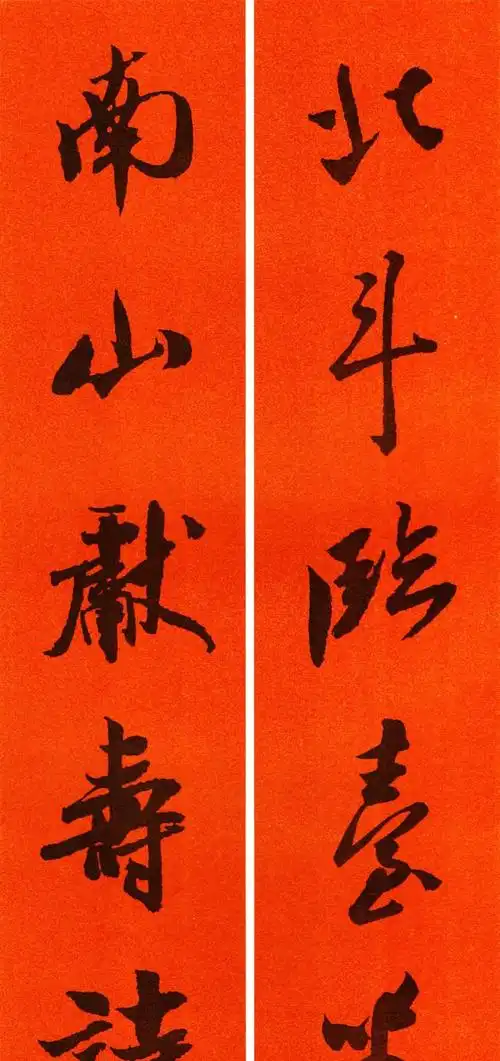 北斗臨臺
南山獻壽